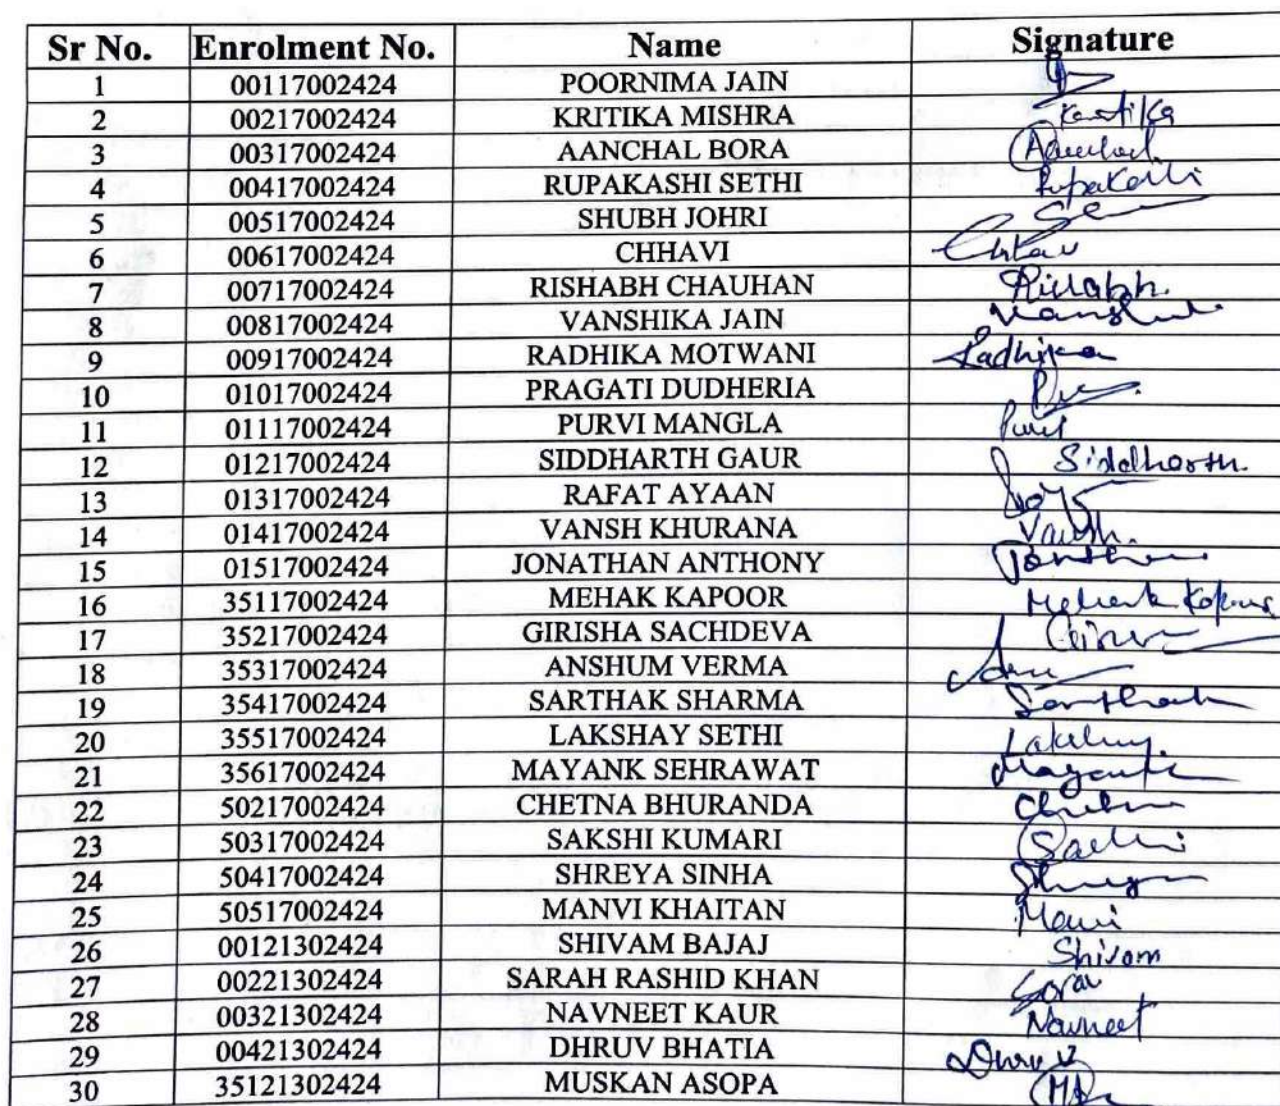 Sr No. Enrolment No. Name Signature
1 00117002424 POORNIMA JAIN
2 00217002424 KRITIKA MISHRA
3 00317002424 AANCHAL BORA
4 00417002424 RUPAKASHI SETHI
5 00517002424 SHUBH JOHRI
6 00617002424 CHHAVI
7 00717002424 RISHABH CHAUHAN
8 00817002424 VANSHIKA JAIN
9 00917002424 RADHIKA MOTWANI Radhika
10 01017002424 PRAGATI DUDHERIA
11 01117002424 PURVI MANGLA
12 01217002424 SIDDHARTH GAUR Siddharth.
13 01317002424 RAFAT AYAAN
14 01417002424 VANSH KHURANA Vansh.
15 01517002424 JONATHAN ANTHONY
16 35117002424 MEHAK KAPOOR Mehak Kapoor
17 35217002424 GIRISHA SACHDEVA
18 35317002424 ANSHUM VERMA
19 35417002424 SARTHAK SHARMA Sarthak
20 35517002424 LAKSHAY SETHI
21 35617002424 MAYANK SEHRAWAT Mayank
22 50217002424 CHETNA BHURANDA
23 50317002424 SAKSHI KUMARI
24 50417002424 SHREYA SINHA
25 50517002424 MANVI KHAITAN
26 00121302424 SHIVAM BAJAJ Shivam
27 00221302424 SARAH RASHID KHAN
28 00321302424 NAVNEET KAUR Navneet
29 00421302424 DHRUV BHATIA Dhruv
30 35121302424 MUSKAN ASOPA